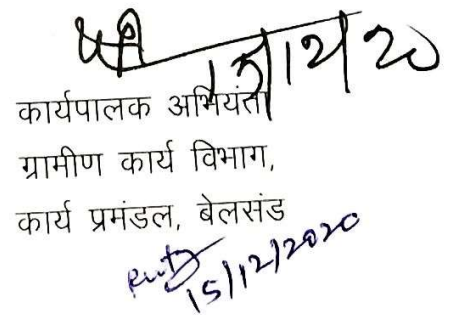 कार्यपालक अभियंता
ग्रामीण कार्य विभाग,
कार्य प्रमंडल, बेलसंड
15/12/2020